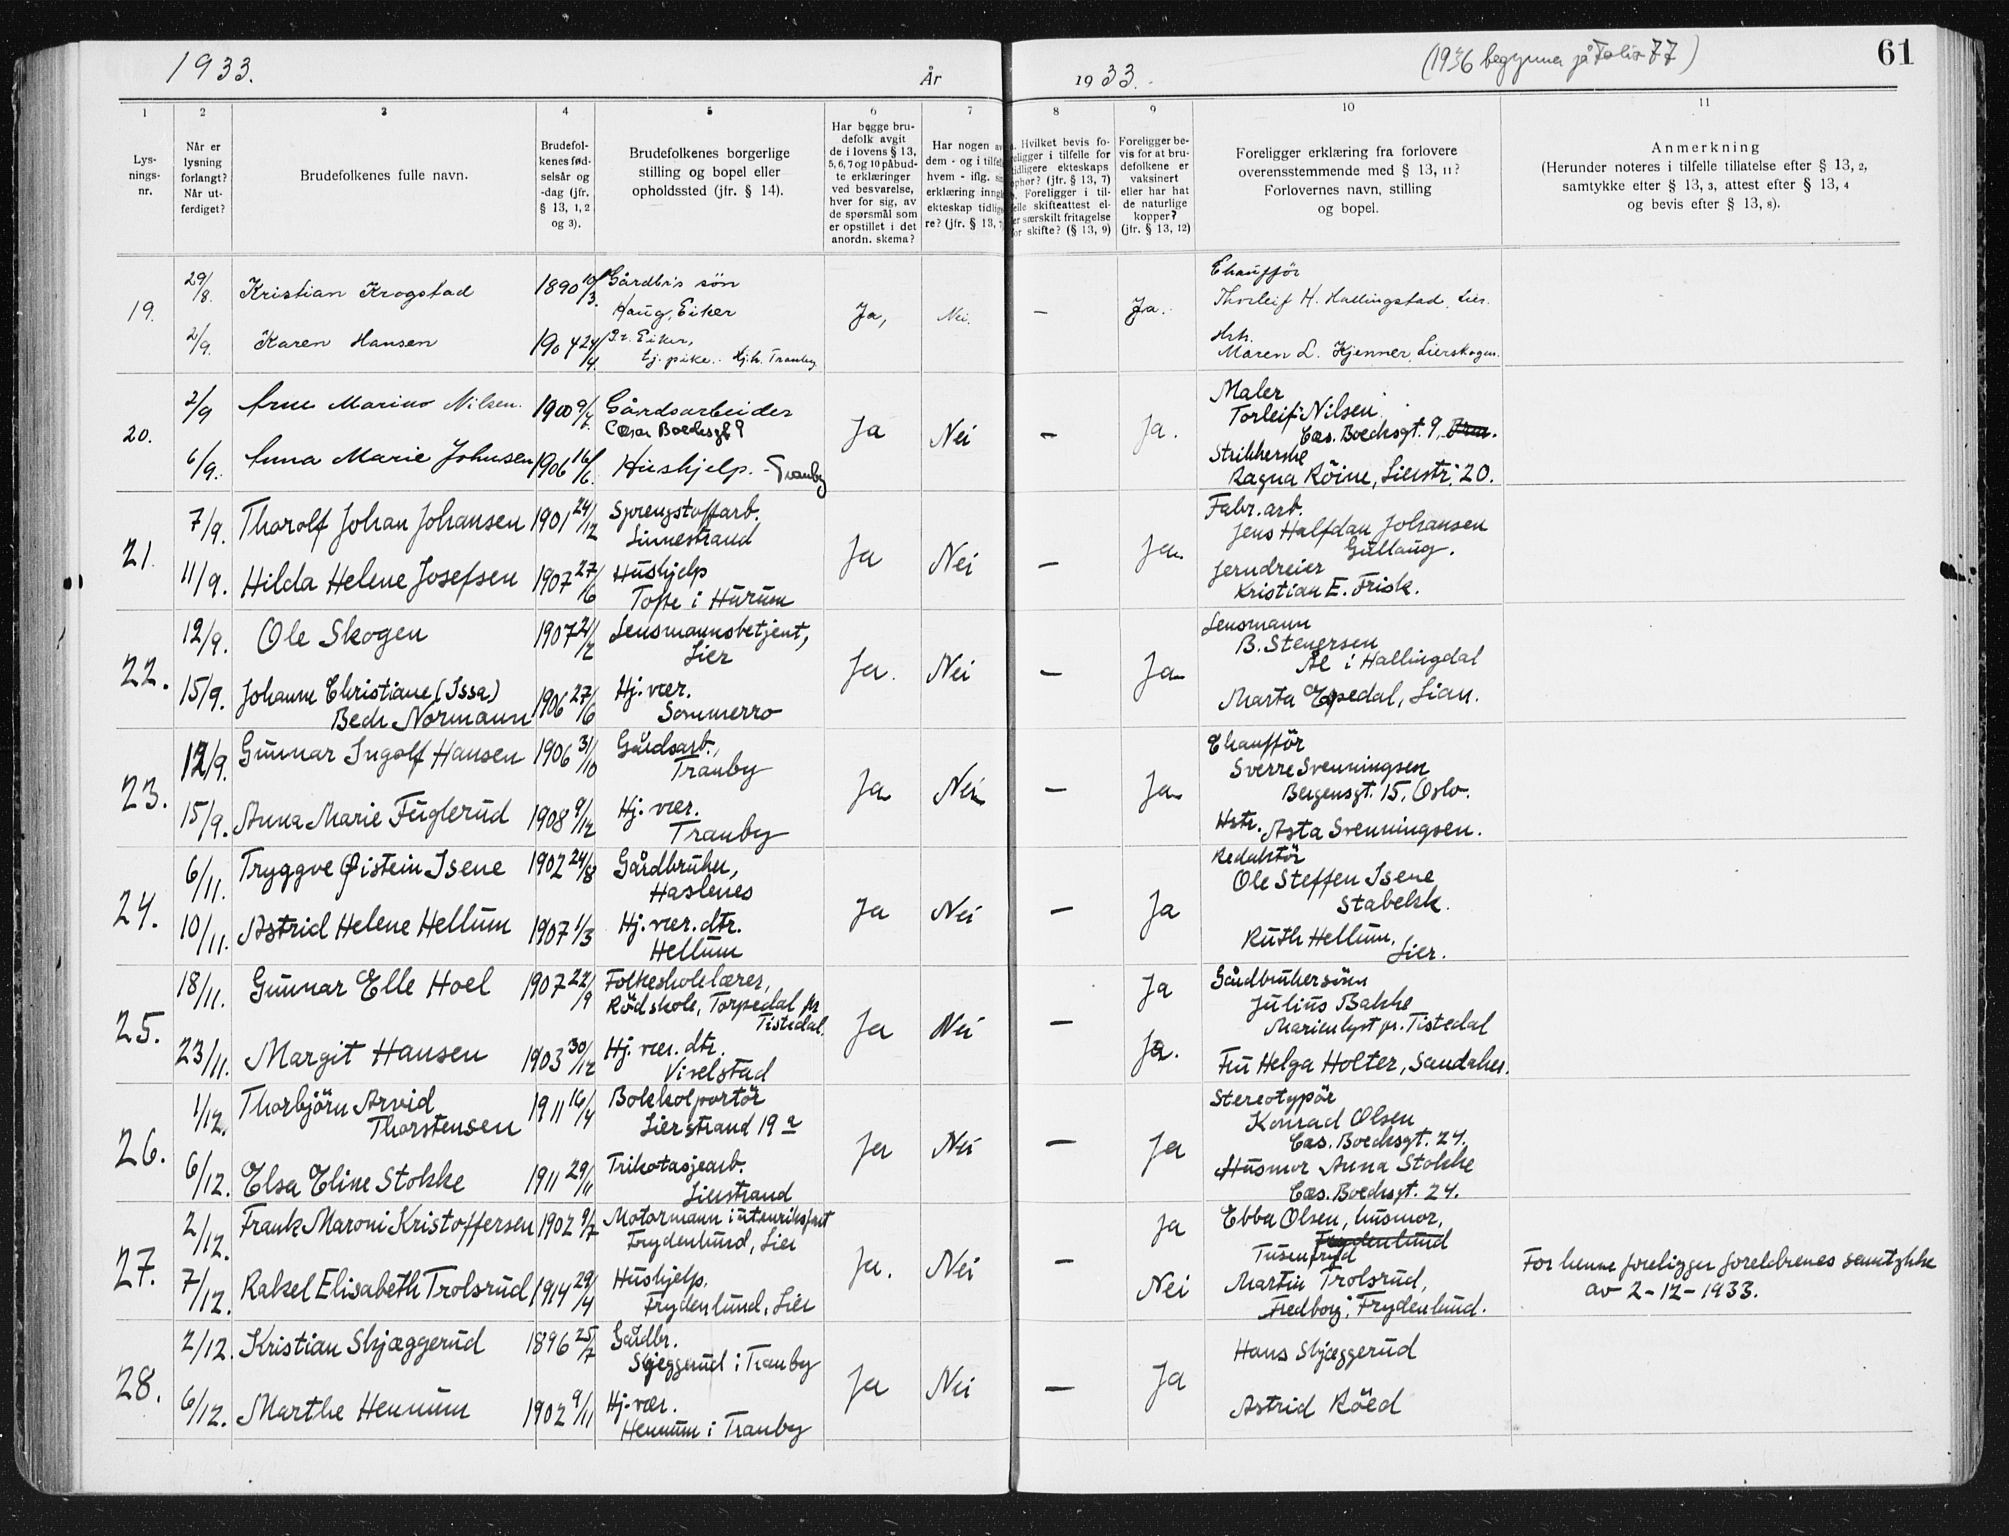 1933.
År
1933.
(1936 begynner på Folio 77)
61
1
2
3
4
5
6
7
8
9
10
11
Lys-
nings-
nr.
Når er
lysning
forlangt?
Når ut-
ferdiget?
Brudefolkenes fulle navn.
Brudefol-
kenes fød-
selsår og
-dag (jfr.
§ 13, 1, 2
og 3).
Brudefolkenes borgerlige
stilling og bopel eller
opholdssted (jfr. § 14).
Har begge bru-
defolk avgit
de i lovens § 13,
5, 6, 7 og 10 påbud-
te erklæringer
ved besvarelse,
hver for sig, av
de spørsmål som
er opstillet i det
anordn. skema?
Har nogen av
dem - og i tilfelle
hvem - iflg.
erklæring inngå
ekteskap tidlige-
re? (jfr. § 13, 7)
Hvilket bevis fo-
religger i tilfelle for
tidligere ekteskaps
ophør? (jfr. § 13, 7)
Foreligger i til-
felle skifteattest el-
ler særskilt fritagelse
for skifte? (§ 13, 9)
Foreligger be-
vis for at bru-
defolkene er
vaksinert
eller har hat
de naturlige
kopper?
(jfr. § 13, 12)
Foreligger erklæring fra forlovere
overensstemmende med § 13, 11?
Forlovernes navn, stilling
og bopel.
Anmerkning
(Herunder noteres i tilfelle tillatelse efter § 13, 2,
samtykke efter § 13, 3, attest efter § 13, 4
og bevis efter § 13, 8).
19.
29/8.
Kristian Krogstad
1890 10/3.
Gårdbr's søn
Haug, Eiker
2/9.
Karen Hansen
1904 24/4.
Eiker,
tj. pike. Hjh. Tranby
Ja,
Nei.
—
Ja.
Chaufför
Thorleif H. Hallingstad, Lier.
Hsh.
Maren L. Kjenner, Lierskogen.
20.
2/9
Arne Marino Nilsen.
1900 9/7.
Gårdsarbeider
Cæsar Boecksgt 9
6/9.
Anna Marie Johnsen
1906 16/6.
Hushjelp. - Tranby
Ja
Nei
—
Ja.
Maler
Torleif Nilsen
Cæs. Boecksgt. 9, Drm.
Strikkerske
Ragna Röine, Lierstr. 20.
21.
7/9.
Thorolf Johan Johansen
1901 24/12
Sprengstoffarb.
Linnestrand
11/9.
Hilda Helene Josefsen
1907 27/6
Hushjelp
Tofte i Hurum
Ja
Nei
—
Ja
Fabr. arb.
Jens Halfdan Johansen
Gullaug.
Jerndreier
Kristian E. Frisk.
22.
12/9.
Ole Skogen
1907 21/2
Lensmannsbetjent,
Lier
15/9.
Johanne Christiane (Issa)
Bech Normann
1906 27/6
Hj. vær.
Sommerro
Ja.
Nei
—
Ja
Lensmann
B. Stenersen
Ål i Hallingdal
Marta Espedal, Lian.
23.
12/9.
Gunnar Ingolf Hansen
1906 31/10
Gårdsarb.,
Tranby
15/9.
Anna Marie Fuglerud
1908 9/12
Hj. vær.
Tranby
Ja
Nei
—
Ja
Chaufför
Sverre Svenningsen
Bergensgt. 15, Oslo.
Hstr. Asta Svenningsen.
24.
6/11.
Tryggve Øistein Isene
1902 24/8
Gårdbruker,
Haslenes
10/11.
Astrid Helene Hellum
1907 1/3
Hj. vær. dtr.
Hellum
Ja
Nei
—
Ja
Redaktör
Ole Steffen Isene
Stabekk.
Ruth Hellum,
Lier.
25.
18/11.
Gunnar Elle Hoel
1907 22/9
Folkeskolelærer,
Rödskole, Torpedal pr
Tistedal.
23/11.
Margit Hansen
1903 30/12
Hj. vær. dtr.
Vivelstad
Ja
Nei
—
Ja
Ja.
Gårdbrukersönn
Julius Bakke
Marienlyst pr. Tistedal
Fru Helga Holter, Sandaker.
26.
1/12.
Thorbjörn Arvid
Thorstensen
1911 16/4
Bokkolportör
Lierstrand 19 a
6/12.
Elsa Eline Stokke
1911 29/11
Trikotasjearb.
Lierstrand
Ja
Nei
—
Ja
Stereotypör
Konrad Olsen
Cæs. Boecksgt. 24.
Husmor Anna Stokke
Cæs. Boecksgt. 24.
27.
2/12.
Frank Maroni Kristoffersen
1902 9/7
Motormann i utenriksfart
Frydenlund, Lier
7/12.
Rakel Elisabeth Trolsrud
1914 29/4
Hushjelp.
Frydenlund, Lier
Ja.
Nei
—
Ja
Nei
Ebba Olsen, husmor,
Frydenlund
Tusenfryd
Martin Trolsrud,
Fredborg, Frydenlund.
For henne foreligger foreldrenes samtykke
av 2-12-1933.
28.
2/12.
Kristian Skjæggerud
1896 25/7
Gårdbr.
Skjeggerud i Tranby
6/12.
Marthe Hennum
1902 9/11
Hj. vær.
Hennum i Tranby
Ja
Nei
—
Ja
Hans Skjæggerud
Astrid Röed